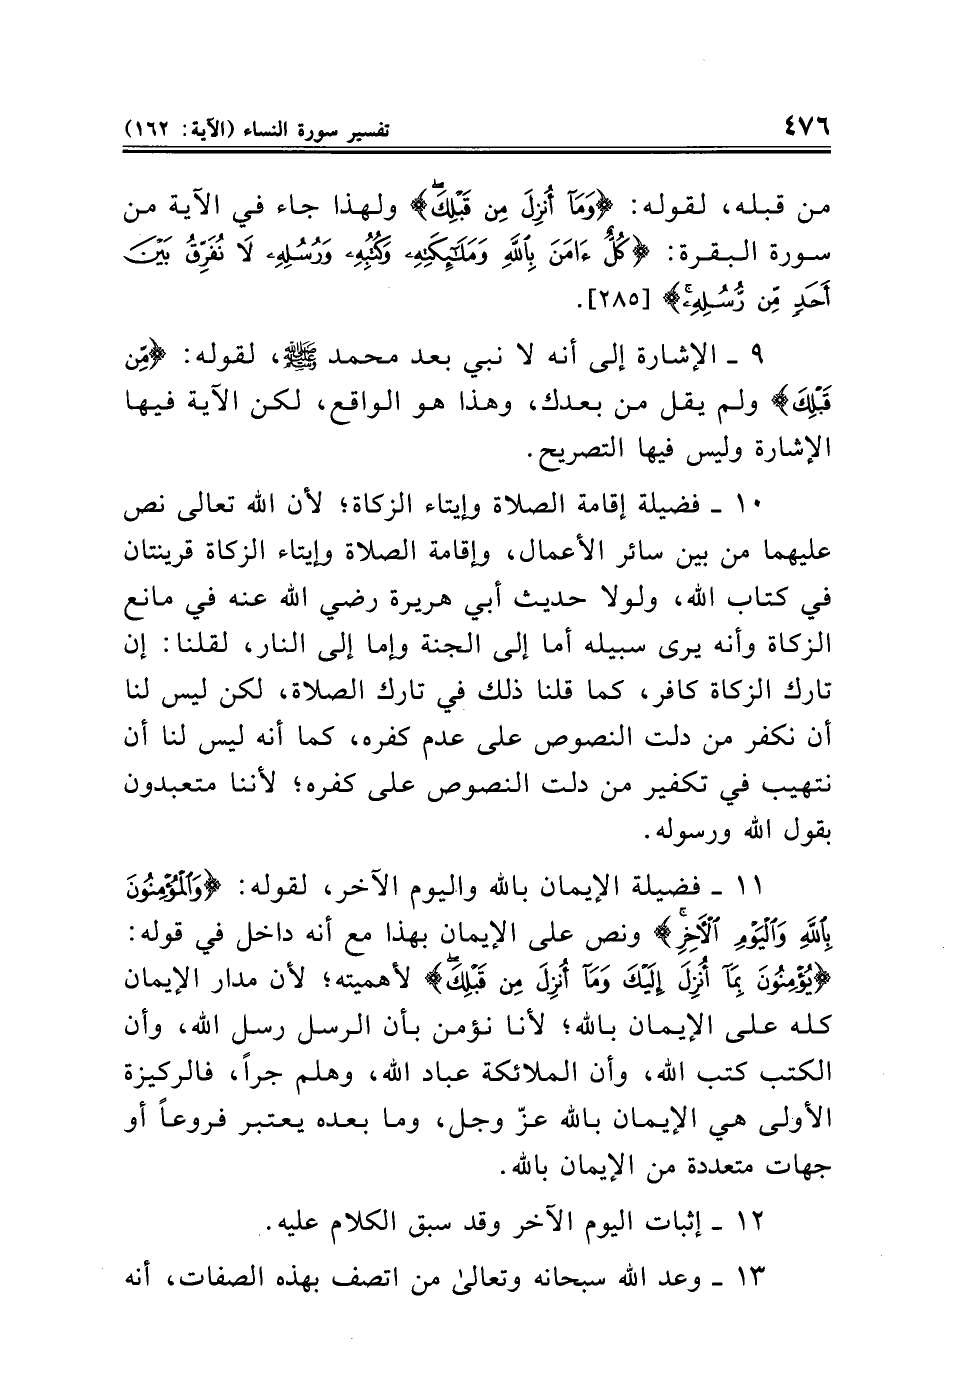 ٤٧٦ تفسير سورة النساء (الآية: ١٦٢)
من قبله، لقوله: ﴿وَمَآ أُنزِلَ مِن قَبْلِكَۚ﴾ ولهذا جاء في الآية من
سورة البقرة: ﴿كُلٌّ ءَامَنَ بِٱللَّهِ وَمَلَٰٓئِكَتِهِۦ وَكُتُبِهِۦ وَرُسُلِهِۦ لَا نُفَرِّقُ بَيْنَ
أَحَدٍ مِّن رُّسُلِهِۦۚ﴾ [٢٨٥].
٩ ـ الإشارة إلى أنه لا نبي بعد محمد ﷺ، لقوله: ﴿مِّن
قَبْلِكَ﴾ ولم يقل من بعدك، وهذا هو الواقع، لكن الآية فيها
الإشارة وليس فيها التصريح.
١٠ ـ فضيلة إقامة الصلاة وإيتاء الزكاة؛ لأن الله تعالى نص
عليهما من بين سائر الأعمال، وإقامة الصلاة وإيتاء الزكاة قرينتان
في كتاب الله، ولولا حديث أبي هريرة رضي الله عنه في مانع
الزكاة وأنه يرى سبيله أما إلى الجنة وإما إلى النار، لقلنا: إن
تارك الزكاة كافر، كما قلنا ذلك في تارك الصلاة، لكن ليس لنا
أن نكفر من دلت النصوص على عدم كفره، كما أنه ليس لنا أن
نتهيب في تكفير من دلت النصوص على كفره؛ لأننا متعبدون
بقول الله ورسوله.
١١ ـ فضيلة الإيمان بالله واليوم الآخر، لقوله: ﴿وَٱلْمُؤْمِنُونَ
بِٱللَّهِ وَٱلْيَوْمِ ٱلْءَاخِرِۚ﴾ ونص على الإيمان بهذا مع أنه داخل في قوله:
﴿يُؤْمِنُونَ بِمَآ أُنزِلَ إِلَيْكَ وَمَآ أُنزِلَ مِن قَبْلِكَۚ﴾ لأهميته؛ لأن مدار الإيمان
كله على الإيمان بالله؛ لأنا نؤمن بأن الرسل رسل الله، وأن
الكتب كتب الله، وأن الملائكة عباد الله، وهلم جراً، فالركيزة
الأولى هي الإيمان بالله عزّ وجل، وما بعده يعتبر فروعاً أو
جهات متعددة من الإيمان بالله.
١٢ ـ إثبات اليوم الآخر وقد سبق الكلام عليه.
١٣ ـ وعد الله سبحانه وتعالىٰ من اتصف بهذه الصفات، أنه